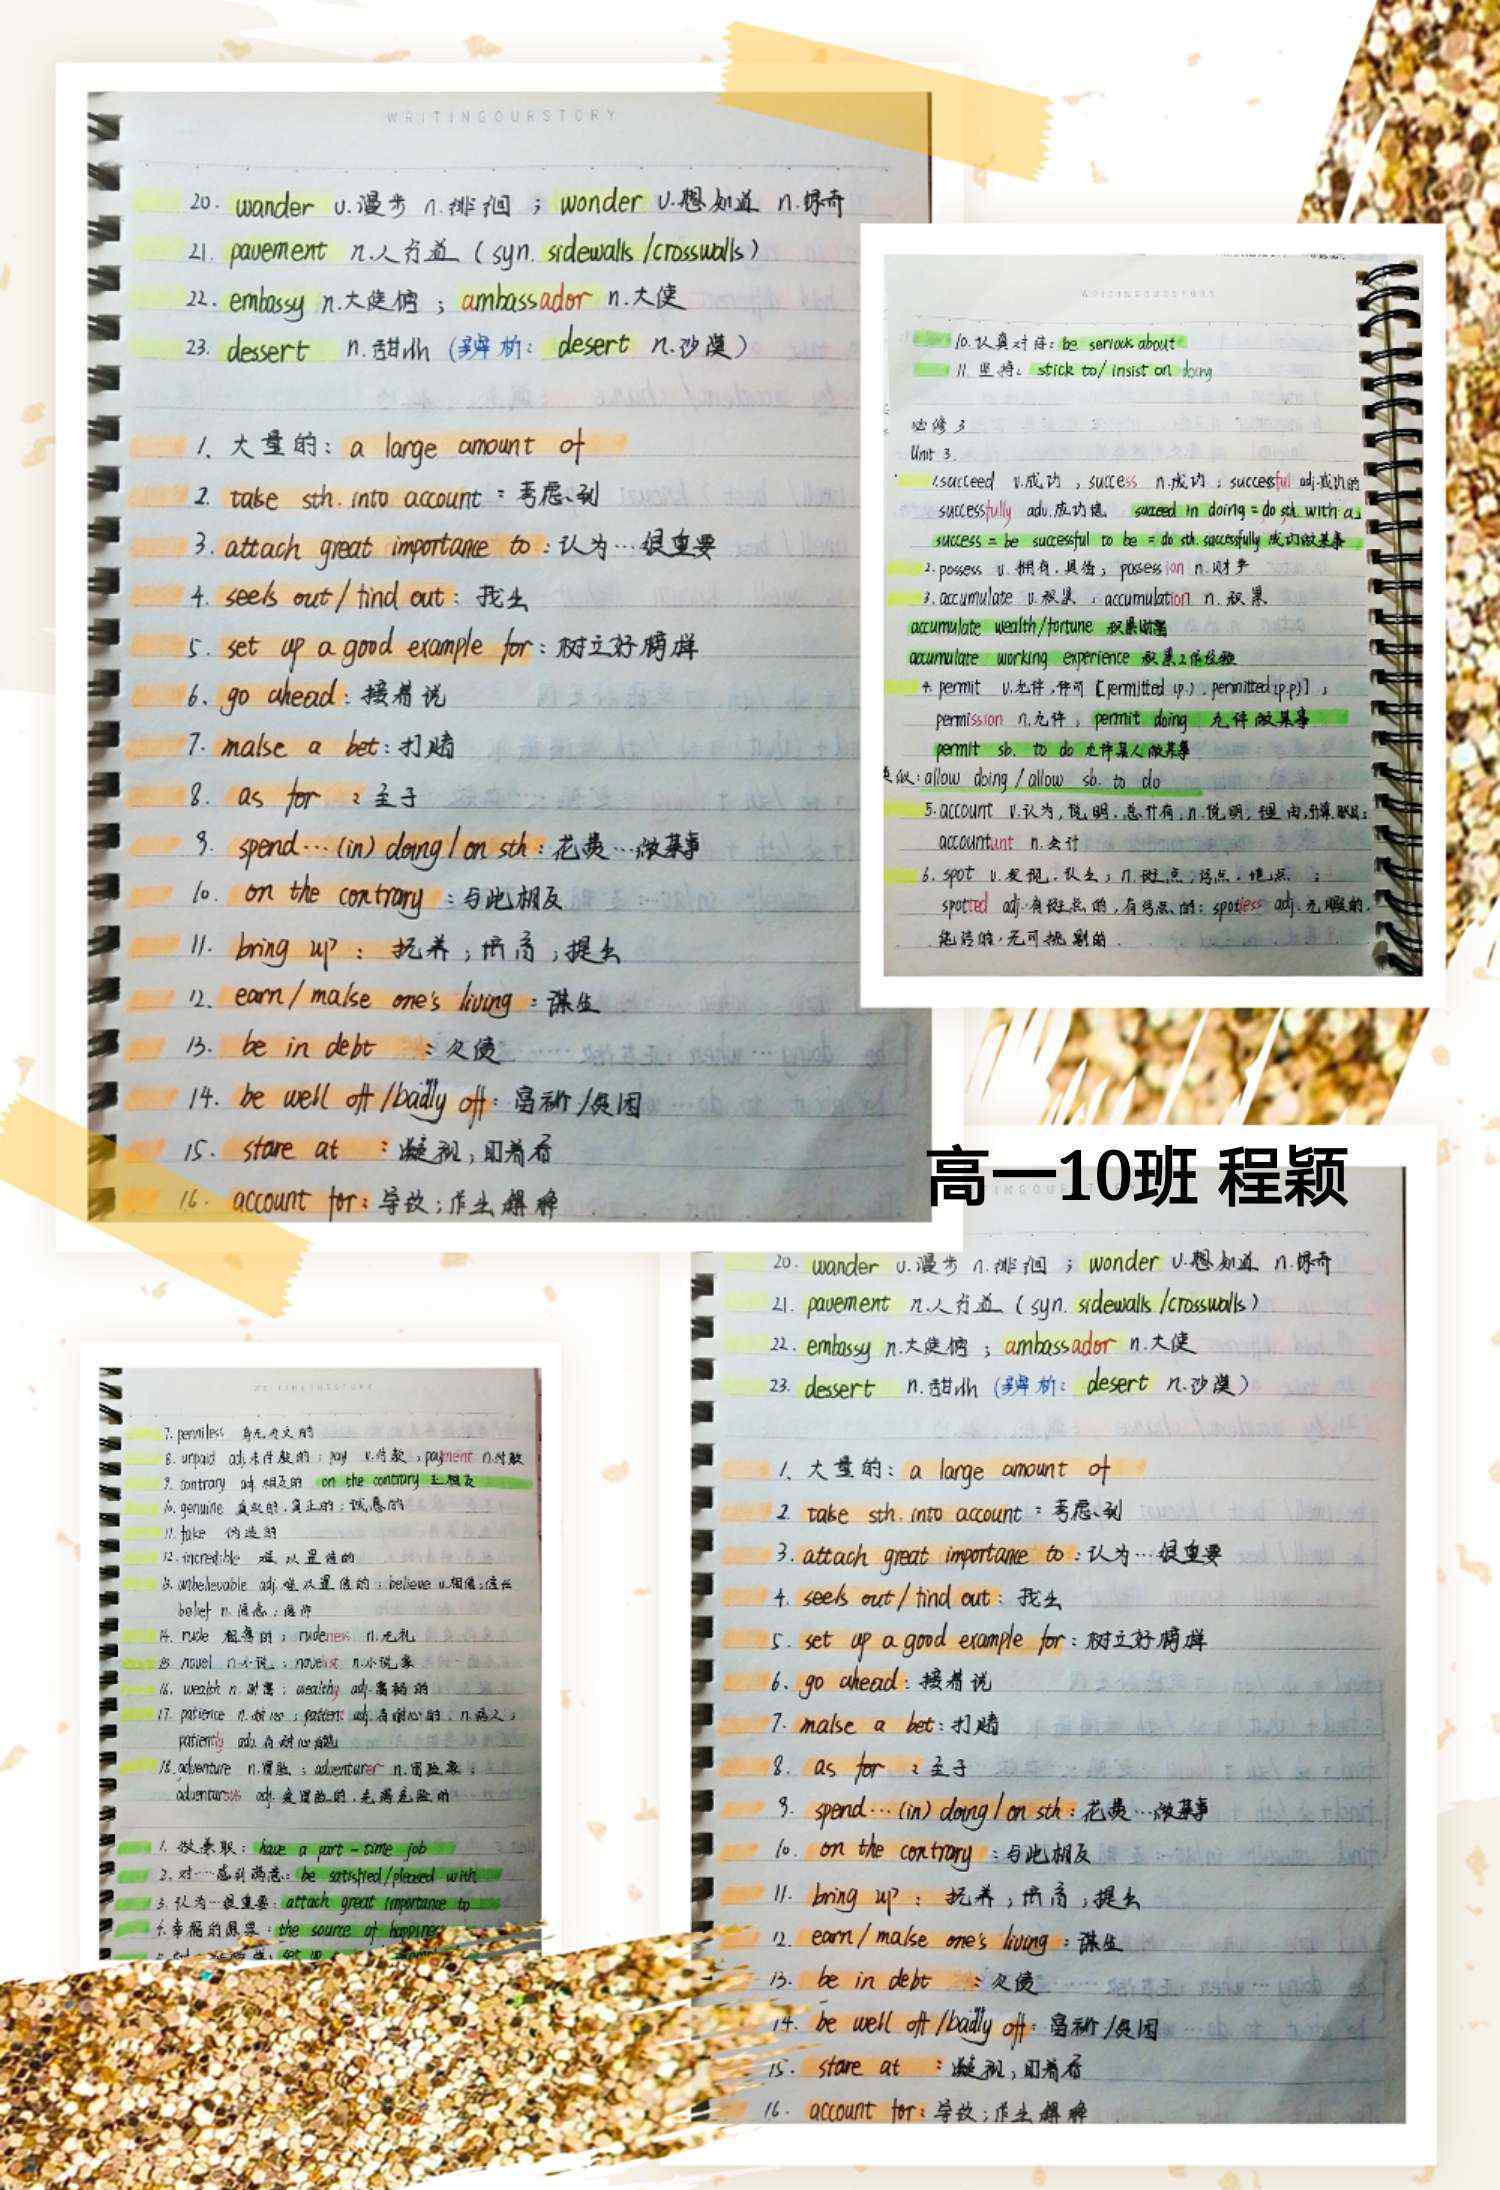 WRITINGOURSTORY
20. wander v.漫步 n.徘徊 ; wonder v.想知道 n.惊奇
21. pavement n.人行道 (syn. sidewalks/crosswalks)
22. embassy n.大使馆 ; ambassador n.大使
23. dessert n.甜 (辨析: desert n.沙漠)
1. 大量的: a large amount of
2. take sth. into account : 考虑到
3. attach great importance to : 认为…很重要
4. seek out/find out : 找出
5. set up a good example for : 树立好榜样
6. go ahead : 接着说
7. make a bet : 打赌
8. as for : 至于
9. spend…(in) doing/on sth : 花费…做某事
10. on the contrary : 与此相反
11. bring up : 抚养 ; 培育 ; 提出
12. earn/make one's living : 谋生
13. be in debt : 欠债
14. be well off/badly off : 富裕/贫困
15. stare at : 凝视 ; 盯着看
16. account for : 导致 ; 作出解释
10. 认真对待: be serious about
11. 坚持: stick to/insist on doing
必修3
Unit 3.
1.succeed v.成功 , success n.成功 ; successful adj.成功的
successfully adv.成功地 succeed in doing = do sth. with a
success = be successful to be = do sth. successfully 成功做某事
2.possess v.拥有,具备; possession n.财产
3.accumulate v.积累 ; accumulation n.积累
accumulate wealth/fortune 积累财富
accumulate working experience 积累工作经验
4.permit v.允许,许可 [permitted (p.), permitted (p.p)] ;
permission n.允许 ; permit doing 允许做某事
permit sb. to do 允许某人做某事
类似: allow doing / allow sb. to do
5.account v.认为,说明,总计有; n.说明,理由,计算,账目;
accountant n.会计
6.spot v.发现,认出; n.斑点,污点,地点 ;
spotted adj.有斑点的,有污点的; spotless adj.无瑕的,
纯洁的,无可挑剔的
高一10班 程颖
7.penniless 身无分文的
8.unpaid adj.未付款的 ; pay v.付款 , payment n.付款
9.contrary adj.相反的 on the contrary 正相反
10.genuine 真政的,真正的 ; 诚恳的
11.fake 伪造的
12.incredible 难以置信的
13.unbelievable adj.难以置信的 ; believe v.相信;信任
belief n.信念 ; 信仰
14.rude 粗鲁的 ; rudeness n.无礼
15.novel n.小说 ; novelist n.小说家
16.wealth n.财富 ; wealthy adj.富裕的
17.patience n.耐心 ; patient adj.有耐心的, n.病人 ;
patiently adv.有耐心地
18.adventure n.冒险 ; adventurer n.冒险家 ;
adventurous adj.爱冒险的,充满危险的
1. 做兼职: have a part-time job
2. 对…感到满意: be satisfied/pleased with
3. 认为…很重要: attach great importance to
4. 幸福的源泉: the source of happiness
20. wander v.漫步 n.徘徊 ; wonder v.想知道 n.惊奇
21. pavement n.人行道 (syn. sidewalks/crosswalks)
22. embassy n.大使馆 ; ambassador n.大使
23. dessert n.甜 (辨析: desert n.沙漠)
1. 大量的: a large amount of
2. take sth. into account : 考虑到
3. attach great importance to : 认为…很重要
4. seek out/find out : 找出
5. set up a good example for : 树立好榜样
6. go ahead : 接着说
7. make a bet : 打赌
8. as for : 至于
9. spend…(in) doing/on sth : 花费…做某事
10. on the contrary : 与此相反
11. bring up : 抚养 ; 培育 ; 提出
12. earn/make one's living : 谋生
13. be in debt : 欠债
14. be well off/badly off : 富裕/贫困
15. stare at : 凝视 ; 盯着看
16. account for : 导致 ; 作出解释